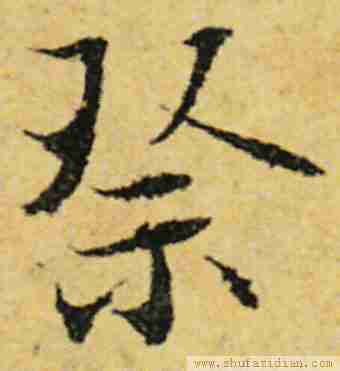 祭
www.shufazidian.com